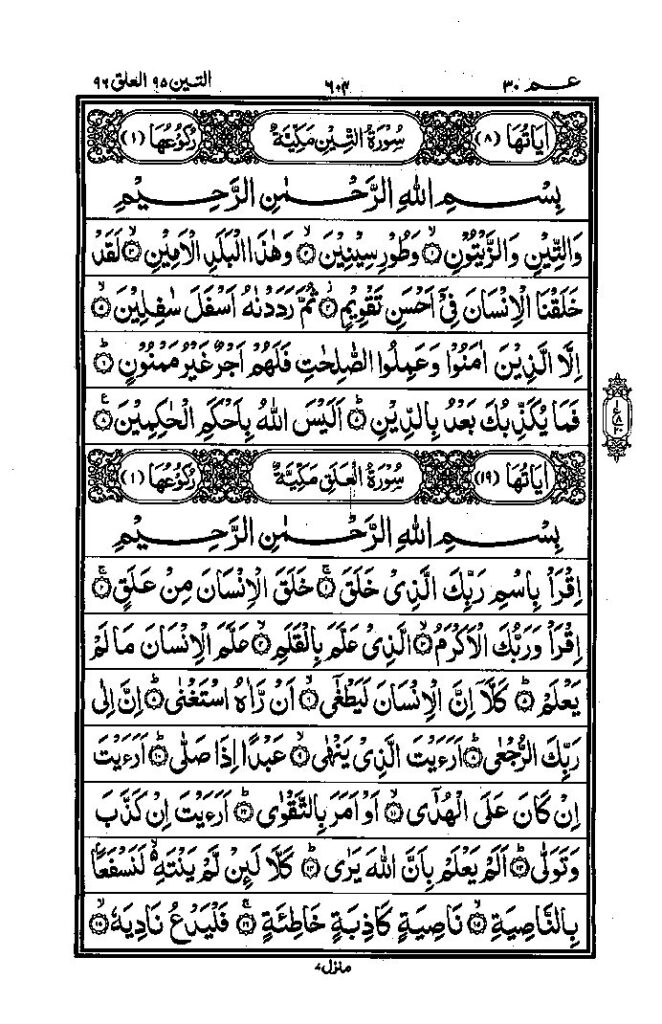 عـم ٣٠ ٦٠٤ التين ٩٥ العلق ٩٦
اٰيَاتُهَا (٨) سُوْرَةُ التِّيْنِ مَكِّيَّةٌ رُكُوْعُهَا (١)
بِسْمِ اللّٰهِ الرَّحْمٰنِ الرَّحِيْمِ
وَالتِّيْنِ وَالزَّيْتُوْنِ ۙ﴿١﴾ وَطُوْرِ سِيْنِيْنَ ۙ﴿٢﴾ وَهٰذَا الْبَلَدِ الْاَمِيْنِ ۙ﴿٣﴾ لَقَدْ
خَلَقْنَا الْاِنْسَانَ فِيْٓ اَحْسَنِ تَقْوِيْمٍ ۫﴿٤﴾ ثُمَّ رَدَدْنٰهُ اَسْفَلَ سٰفِلِيْنَ ۙ﴿٥﴾
اِلَّا الَّذِيْنَ اٰمَنُوْا وَعَمِلُوا الصّٰلِحٰتِ فَلَهُمْ اَجْرٌ غَيْرُ مَمْنُوْنٍ ؕ﴿٦﴾
فَمَا يُكَذِّبُكَ بَعْدُ بِالدِّيْنِ ؕ﴿٧﴾ اَلَيْسَ اللّٰهُ بِاَحْكَمِ الْحٰكِمِيْنَ ﴿٨﴾ ع
١
٨
٢٠
اٰيَاتُهَا (١٩) سُوْرَةُ الْعَلَقِ مَكِّيَّةٌ رُكُوْعُهَا (١)
بِسْمِ اللّٰهِ الرَّحْمٰنِ الرَّحِيْمِ
اِقْرَاْ بِاسْمِ رَبِّكَ الَّذِيْ خَلَقَ ۚ﴿١﴾ خَلَقَ الْاِنْسَانَ مِنْ عَلَقٍ ۚ﴿٢﴾
اِقْرَاْ وَرَبُّكَ الْاَكْرَمُ ۙ﴿٣﴾ الَّذِيْ عَلَّمَ بِالْقَلَمِ ۙ﴿٤﴾ عَلَّمَ الْاِنْسَانَ مَا لَمْ
يَعْلَمْ ؕ﴿٥﴾ كَلَّآ اِنَّ الْاِنْسَانَ لَيَطْغٰٓى ۙ﴿٦﴾ اَنْ رَّاٰهُ اسْتَغْنٰى ؕ﴿٧﴾ اِنَّ اِلٰى
رَبِّكَ الرُّجْعٰى ؕ﴿٨﴾ اَرَءَيْتَ الَّذِيْ يَنْهٰى ۙ﴿٩﴾ عَبْدًا اِذَا صَلّٰى ؕ﴿١٠﴾ اَرَءَيْتَ
اِنْ كَانَ عَلَى الْهُدٰٓى ۙ﴿١١﴾ اَوْ اَمَرَ بِالتَّقْوٰى ؕ﴿١٢﴾ اَرَءَيْتَ اِنْ كَذَّبَ
وَتَوَلّٰى ؕ﴿١٣﴾ اَلَمْ يَعْلَمْ بِاَنَّ اللّٰهَ يَرٰى ؕ﴿١٤﴾ كَلَّا لَئِنْ لَّمْ يَنْتَهِ ۙ۬ لَنَسْفَعًۢا
بِالنَّاصِيَةِ ۙ﴿١٥﴾ نَاصِيَةٍ كَاذِبَةٍ خَاطِئَةٍ ۚ﴿١٦﴾ فَلْيَدْعُ نَادِيَهٗ ۙ﴿١٧﴾
منزل ٧